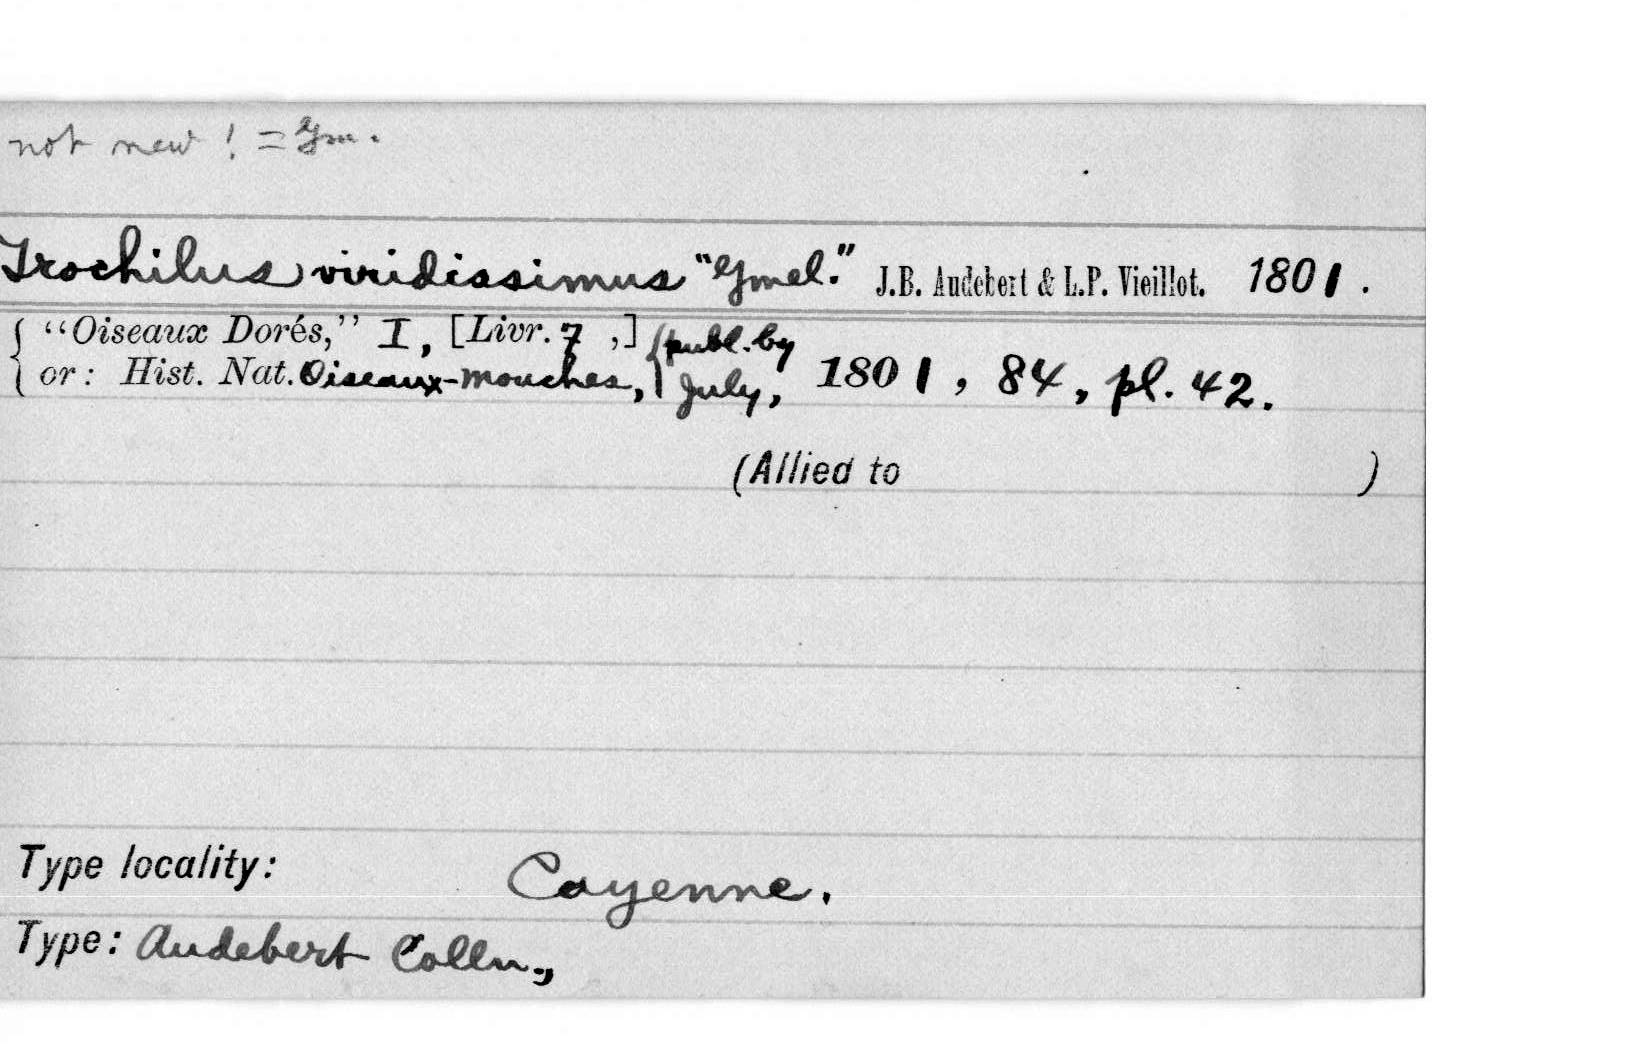 not new ! = Gm.
Trochilus viridissimus "Gmel." J.B. Audebert & L.P. Vieillot. 1801.
"Oiseaux Dorés," I, [Livr. 7 ,] publ. by
or: Hist. Nat. Oiseaux-mouches, July, 1801, 84, pl. 42.
(Allied to )
Type locality: Cayenne.
Type: Audebert Colln.,